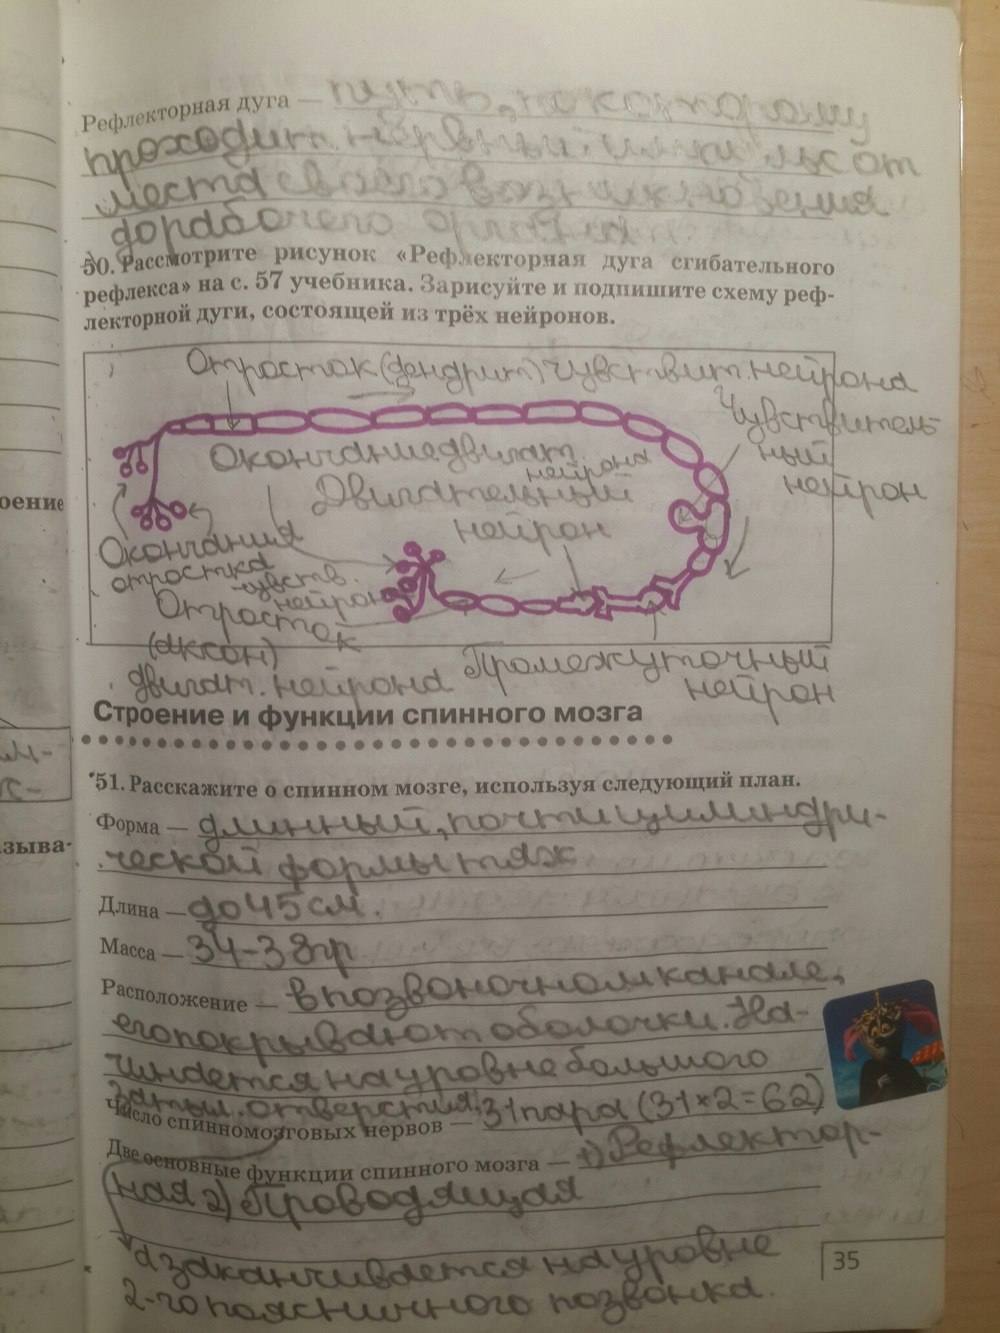 Рефлекторная дуга — путь, по которому
проходит нервный импульс от
места своего возникновения
до рабочего органа.
50. Рассмотрите рисунок «Рефлекторная дуга сгибательного
рефлекса» на с. 57 учебника. Зарисуйте и подпишите схему реф-
лекторной дуги, состоящей из трёх нейронов.
Отросток (дендрит) чувствит. нейрона
Чувствитель-
ный
нейрон
Окончание двигат.
нейрона
Двигательный
нейрон
Окончания
отростка
чувств.
нейрона
Отросток
(аксон)
двигат. нейрона
Промежуточный
нейрон
Строение и функции спинного мозга
оение
51. Расскажите о спинном мозге, используя следующий план.
Форма — длинный, почти цилиндри-
ческой формы тяж
зыва-
Длина — до 45 см.
Масса — 34-38 гр
Расположение — в позвоночном канале,
его покрывают оболочки. На-
чинается на уровне большого
затыл. отверстия,
Число спинномозговых нервов — 31 пара (31×2=62)
Две основные функции спинного мозга — 1) Рефлектор-
ная 2) Проводящая
а заканчивается на уровне
2-го поясничного позвонка.
35